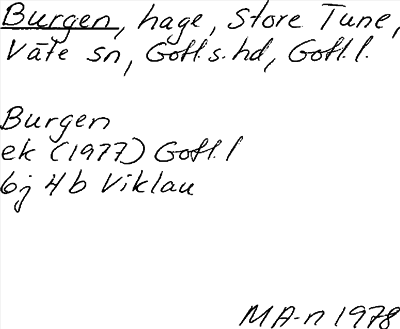 Burgen, hage, Store Tune,
Väte sn, Gotl.s.hd, Gotl.l.
Burgen
ek (1977) Gotl.l
bj 4b Viklau
MA-n 1978